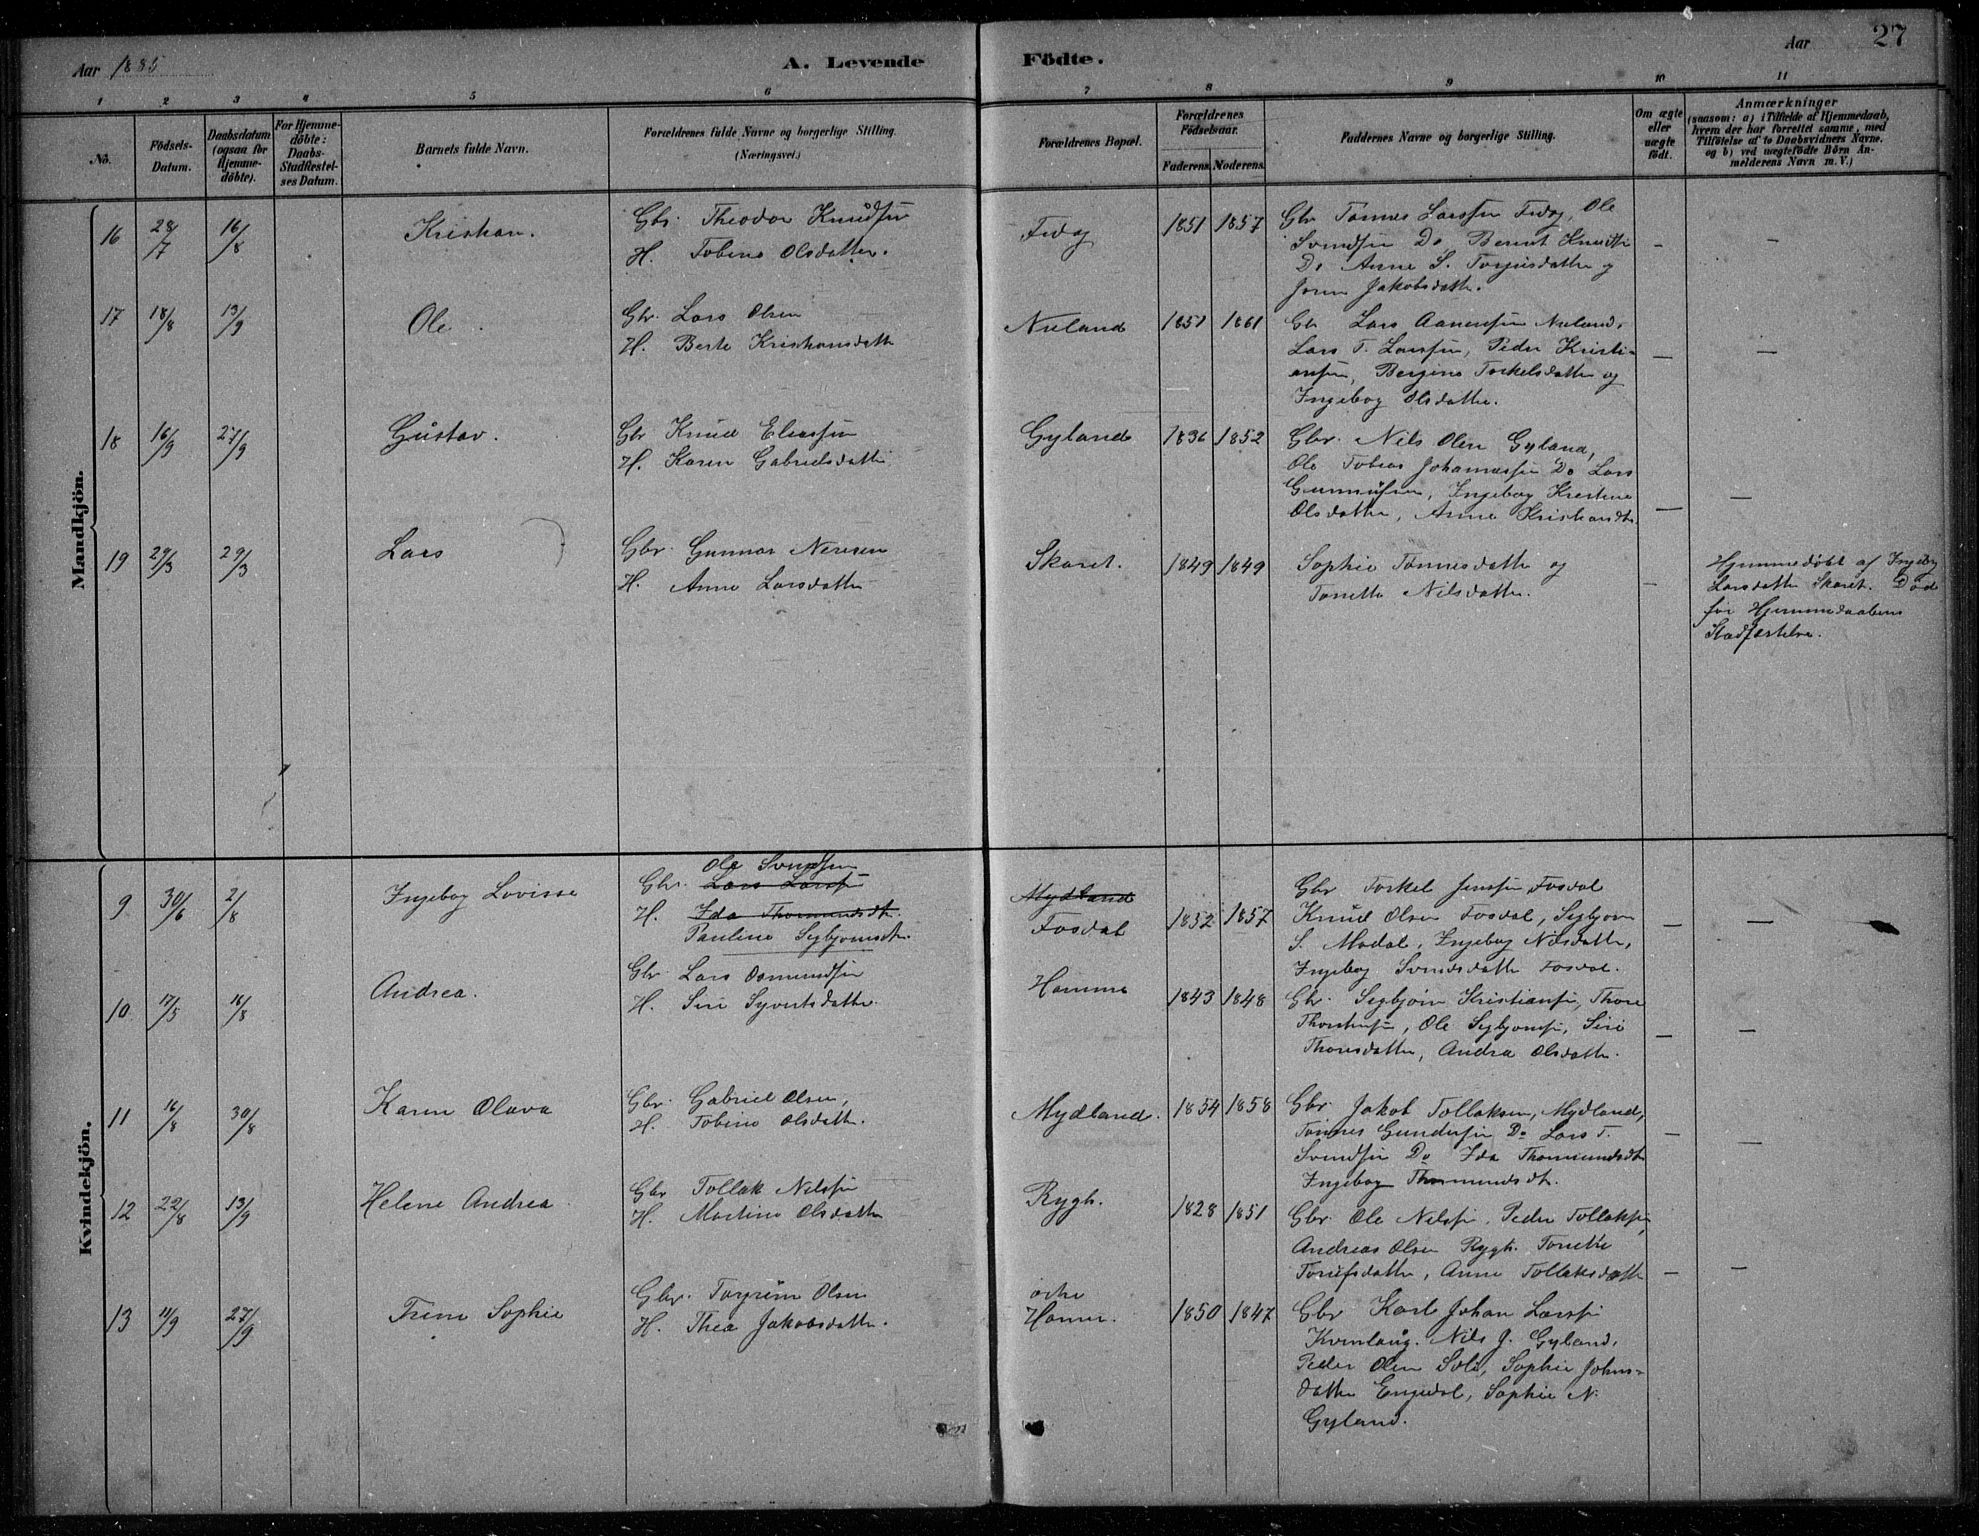 27
Aar 1885
A. Levende
Födte.
Aar
1 2 3 4 5 6 7 8 9 10 11
No.
Födsels-
Datum.
Daabsdatum
(ogsaa for
Hjemme-
döbte).
For Hjemme-
döbte:
Daabs-
Stadfæstel-
ses Datum.
Barnets fulde Navn.
Forældrenes fulde Navne og borgerlige Stilling.
(Næringsvei.)
Forældrenes Bopæl.
Forældrenes
Födselsaar.
Faderens. Moderens.
Faddernes Navne og borgerlige Stilling.
Om ægte
eller
uægte
födt.
Anmærkninger
(saasom: a) i Tilfælde af Hjemmedaab,
hvem der har forrettet samme, med
Tilföielse af to Daabsvidners Navne.
og b) ved uægtefödte Börn An-
melderens Navn m. V.)
Mandkjön.
16 28/7 16/8 Kristian.
Gbr. Theodor Knudsen
H. Tobine Olsdatter.
1851 1857
Gbr Tönnes Larssen Fedog, Ole
Svendsen Do Berent Knudsen
Do Anne S. Torjusdatter og
Joren Jakobsdatter.
— —
17 18/8 13/9 Ole.
Gbr. Lars Olsen
H. Berte Kristiansdatter
Nuland 1851 1861
Gbr Lars Aanensen Nuland,
Lars T. Larssen, Peder Kristi-
ansen, Bergine Torkelsdatter og
Ingebog Olsdatter.
— —
18 16/9 27/9 Gustav.
Gbr Knud Eliassen
H. Karen Gabrielsdatter
Gyland 1836 1852
Gbr. Nils Olsen Gyland,
Ole Tobias Johannessen Do Lars
Gunnufsen, Ingebog Kristine
Olsdatter, Anne Kristiansdtr.
— —
19 29/3 29/3 Lars
Gbr. Gunnar Neresen
H. Anne Larsdatter
Skaret. 1849 1849
Sophie Tönnesdatter og
Tonette Nilsdatter.
—
Hjemmedöbt af Ingebog
Larsdatter Skaret. Död
för Hjemmedaabens
Stadfæstelse.
Kvindekjön.
9 30/6 2/8 Ingebog Lovisse
Ole Svendsen
Gbr. Lars Larssen
H. Ida Thormundsdtr.
Pauline Segbjornsdtr.
Mydland
Fosdal 1852 1857
Gbr Torkel Jenssen Fosdal
Knud Olsen Fosdal, Segbjorn
S. Modal, Ingebog Nilsdatter,
Ingebog Svendsdatter Fosdal.
— —
10 17/5 16/8 Andrea.
Gbr. Lars Osmundsen
H. Siri Syvertsdatter.
Hamme 1843 1848
Gbr. Segbjörn Kristiansen, Thore
Thorstensen, Ole Segbjornsen, Siri
Thoresdatter, Andrea Olsdatter.
— —
11 16/8 30/8 Karen Olava
Gbr. Gabriel Olsen,
H. Tobine Olsdatter.
Mydland. 1854 1858
Gbr. Jakob Tollaksen, Mydland,
Tönnes Gundersen Do Lars T.
Svendsen Do Ida Thormundsdtr
Ingebog Thormundsdtr.
— —
12 22/8 13/9 Helene Andrea
Gbr Tollak Nilssen
H. Martine Olsdatter
Rygh. 1828 1851
Gbr. Ole Nilssen, Peder Tollaksen,
Andreas Olsen Rygh. Tonette
Torufsdatter, Anne Tollaksdatter
— —
13 11/9 27/9 Trine Sophie
Gbr. Torjus Olsen
H. Thea Jakobsdatter.
Hamre. 1850 1847
Gbr Karl Johan Larssen
Kvinlaug. Nils J. Gyland,
Peder Olsen Soli, Sophie Johns-
datter Engedal, Sophie N.
Gyland.